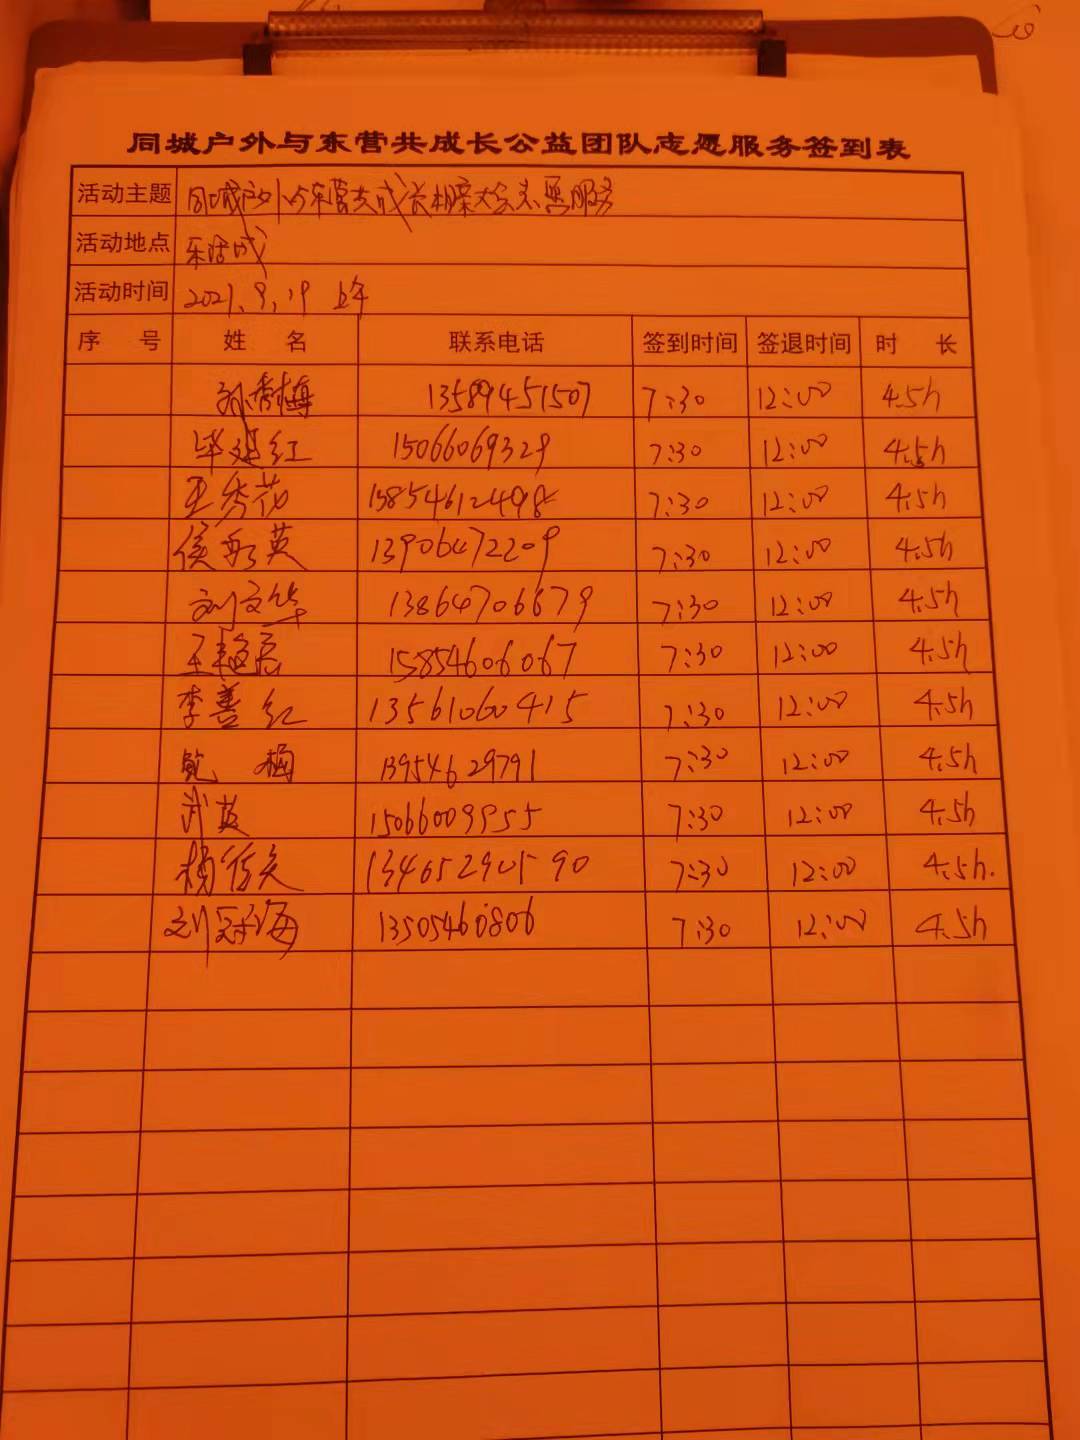 同城户外与东营共成长公益团队志愿服务签到表
活动主题 同城户外与东营共成长相亲大会志愿服务
活动地点 乐活城
活动时间 2021.9.19 上午
序 号 姓 名 联系电话 签到时间 签退时间 时 长
孙秀梅 13589451507 7:30 12:00 4.5h
毕延红 15066069329 7:30 12:00 4.5h
王秀花 15854612498 7:30 12:00 4.5h
侯 英 13906472209 7:30 12:00 4.5h
刘文华 13864706679 7:30 12:00 4.5h
王艳 15854606067 7:30 12:00 4.5h
李善红 13561060415 7:30 12:00 4.5h
梅 13954629791 7:30 12:00 4.5h
武英 15066009955 7:30 12:00 4.5h
杨 13465290590 7:30 12:00 4.5h.
刘 海 13505460806 7:30 12:00 4.5h